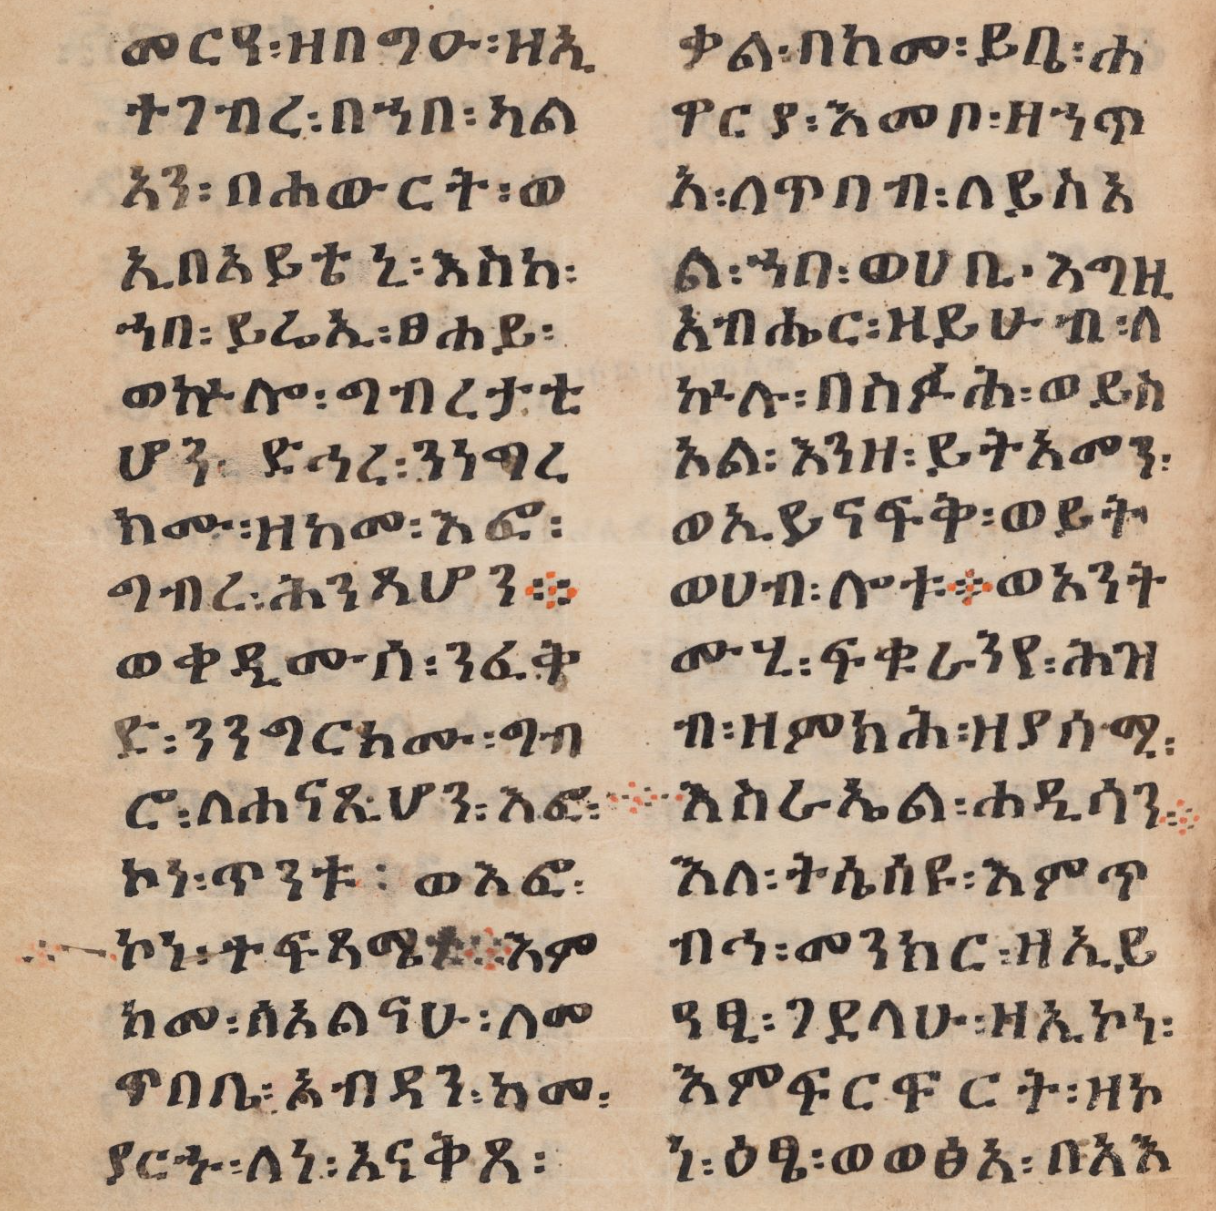 መርዓ፡ዘበግዑ፡ዘኢ
ተገብረ፡በኀበ፡ካል
አን፡በሐውርት፡ወ
ኢበአይቴኒ፡እስከ፡
ኀበ፡ይሬኢ፡ፀሐይ፡
ወኵሎ፡ግብረታቲ
ሆን፡ድኅረ፡ንነግረ
ክሙ፡ዘከመ፡እፎ፡
ግብረ፡ሕንጻሆን፨
ወቀዲሙሰ፡ንፈቅ
ድ፡ንንግርክሙ፡ግብ
ሮ፡ለሐናጺሆን፡እፎ፡
ኮነ፡ጥንቱ፡ወእፎ፡
ኮነ፡ተፍጻሜቱ፨እም
ከመ፡ሰአልናሁ፡ለመ
ጥበቤ፡አብዳን፡ከመ፡
ያርኁ፡ለነ፡አናቅጸ፡
ቃል፡በከመ፡ይቤ፡ሐ
ዋርያ፡እመቦ፡ዘኀጥ
አ፡ለጥበብ፡ለይስእ
ል፡ኀበ፡ወሀቢ፡እግዚ
አብሔር፡ዘይሁብ፡ለ
ኵሉ፡በስፉሕ፡ወይስ
አል፡እንዘ፡ይትአመን፡
ወኢይናፍቅ፡ወይት
ወሀብ፡ሎቱ፨ወአንት
ሙሂ፡ፍቁራንየ፡ሕዝ
ብ፡ዘምክሕ፡ዘያሰሚ፡
እስራኤል፡ሐዲሳን፨
እለ፡ትሴሰዩ፡እምጥ
ብኅ፡መንክር፡ዘኢይ
ዳፂ፡ገደላሁ፡ዘኢኮነ፡
እምፍርፍርት፡ዘኮ
ነ፡ዕፄ፡ወወፅአ፡በእእ